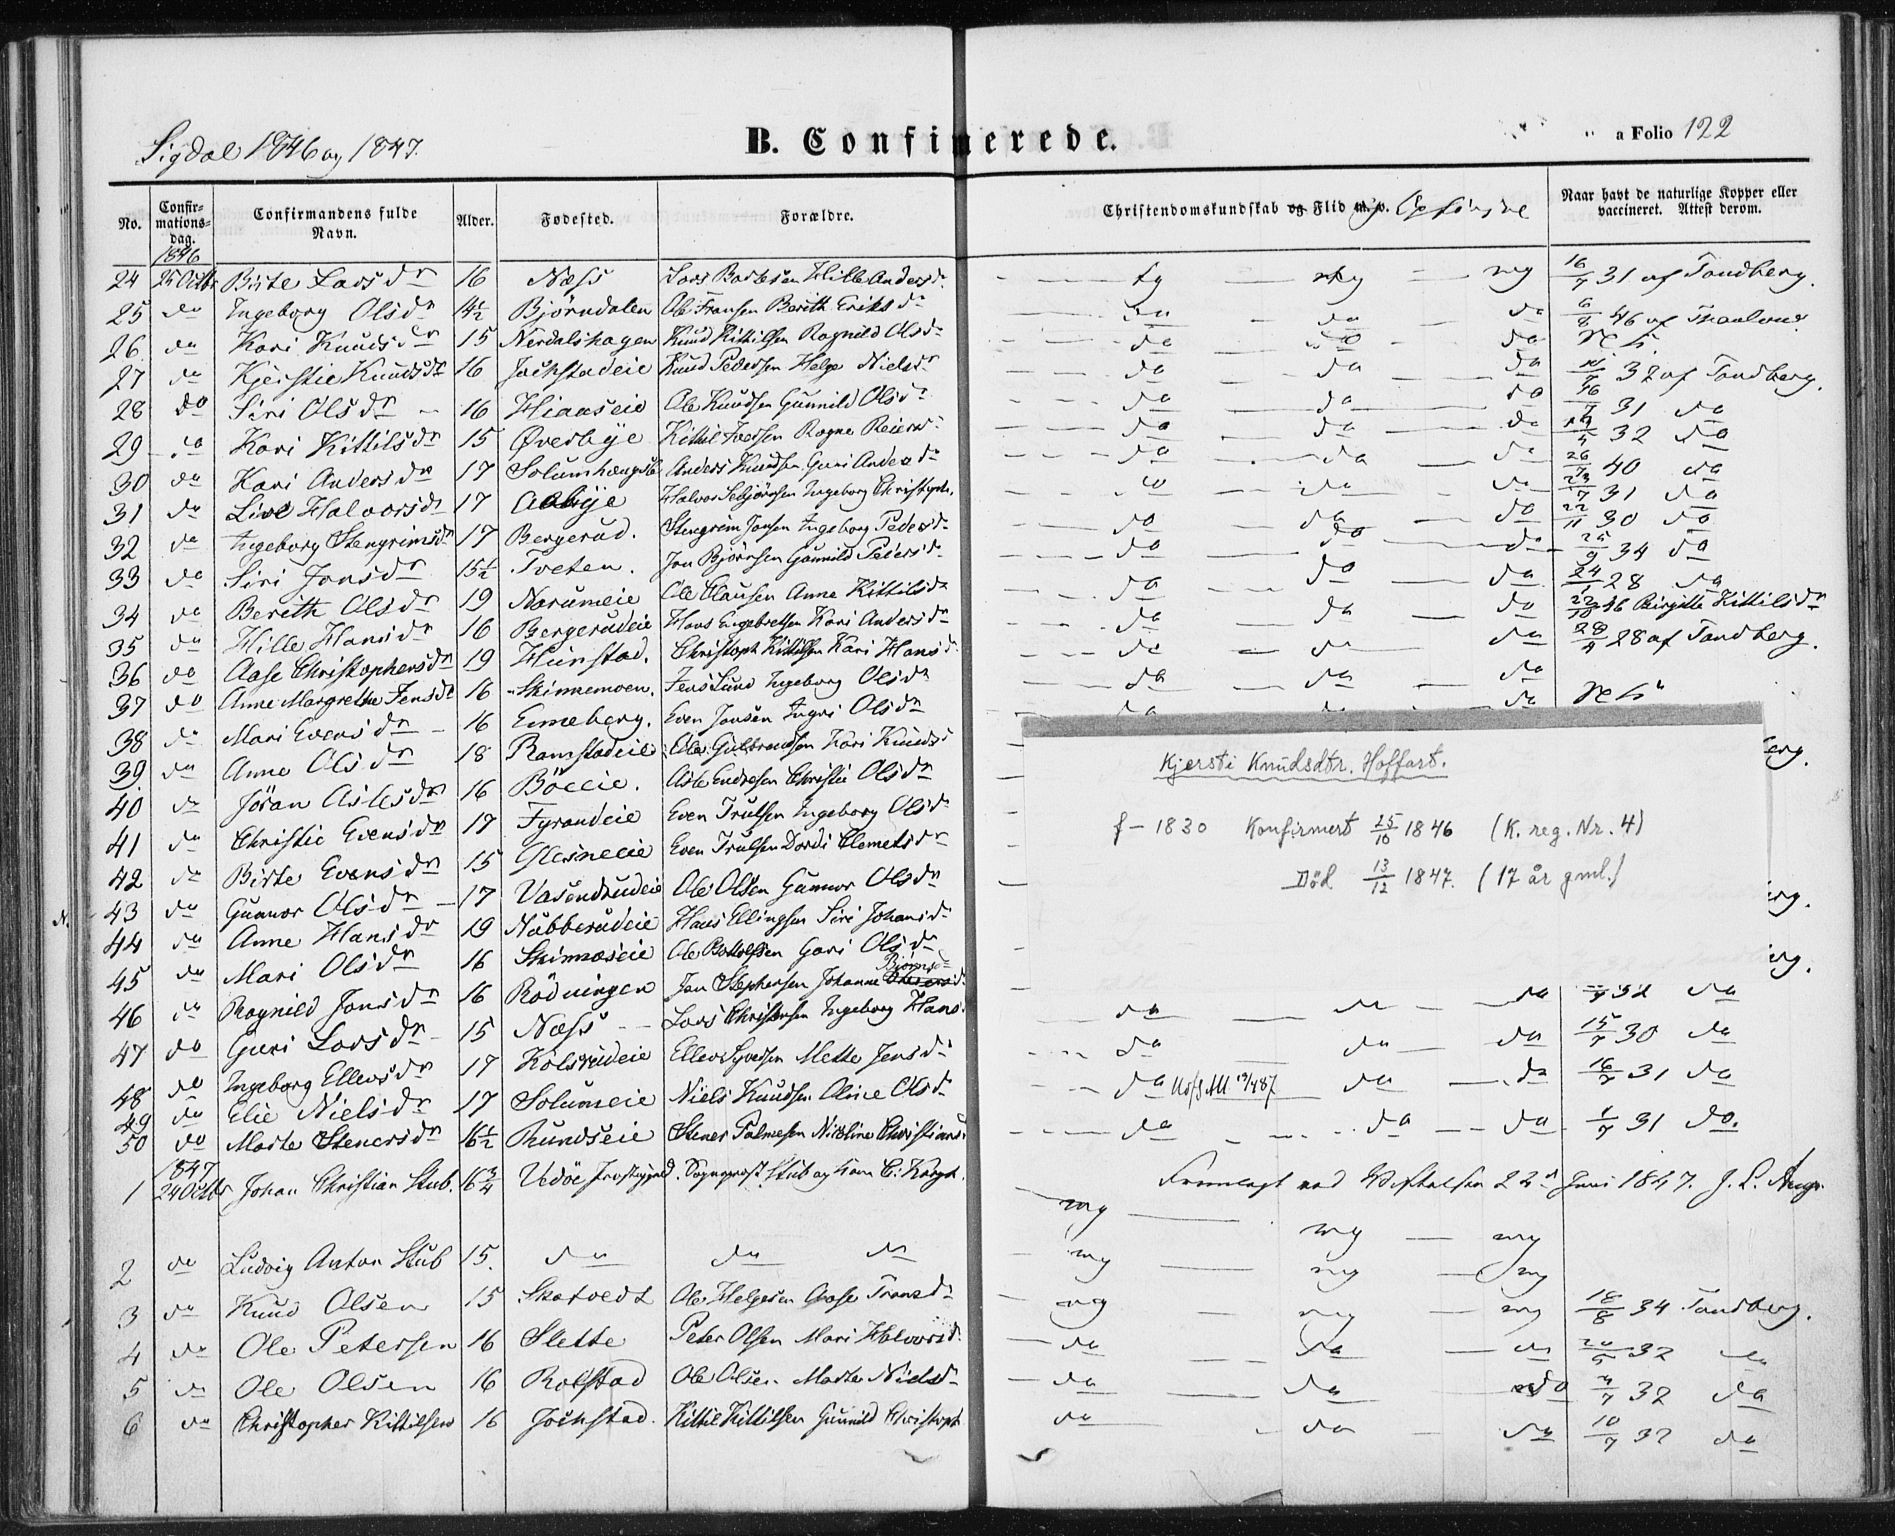 Sigdal 1846 og 1847.
B. Confirmerede.
a Folio 122
No. Confir-mations-dag. Confirmandens fulde Navn. Alder. Fødested. Forældre. Christendomskundskab og Flid m. v. Opførsel Naar havt de naturlige Kopper eller vaccineret. Attest derom.
1846
24 25 Octbr Birte Larsdr 16 Næss Lars Hille Andersd. tg mg mg 16/7 31 af Tandberg.
25 do Ingeborg Olsdr 14½ Bjørndalen Ole Fransen Berith Eriksdr do do 6/8 46 af
26 do Kari Knudsdr 15 Nerdalshagen Knud Kittilsen Ragnild Olsdr do do do
27 do Kjerstie Knudsdr 16 Jockstadeie Knud Pedersen Helge Nielsdr do do do 32 af Tandberg.
28 do Siri Olsdr 16 Hiaaseie Ole Knudsen Gunnild Olsdr do do do 31 do
29 do Kari Kittilsdr 15 Øverbye Kittil Iversen Ragne Reiersdr do do do 32 do
30 do Kari Andersdr 17 Anders Knudsen Guri Andersdr do do do 26/7 40 do
31 do Live Halvorsdr 17 Aabye Halvor Ingeborg Christophs. do do do 23/7 31 do
32 do Ingeborg Stengrimsdr 17 Bergerud. Stengrim Jonsen Ingeborg Pedersdr do do do 22/11 30 do
33 do Siri Jonsdr 15½ Tveten. Jon Bjørnsen Gunnild Pedersdr do do do 25/9 34 do
34 do Berith Olsdr 19 Narumeie Ole Clausen Anne Kittilsdr do do do 24/1 28 do
35 do Hille Hansdr 16 Bergerudeie Hans Engebretsen Kari Andersdr do do do 46 Birgitte Kittilsdr
36 do Aase Christophersdr 19 Hunstad. Christoph Kittilsen Kari Hansd do do 28 af Tandberg.
37 do Anne Margrethe Jensdr 16 Skinnemoen. Jens Lund Ingeborg Olsdr do do do
38 do Mari Evensdr 16 Enneberg. Even Jonsen Ingri Olsdr do do
39. do Anne Olsdr 18 Ramstadeie Ole Gulbrandsen Kari Knudsd
40 do Jøran Aslesdr 16 Bøeeie. Asle Endresen Christie Olsdr
41 do Christie Evensdr 17 Fyrandeie Even Trulsen Ingeborg Olsdr
42 do Birte Evensdr 15 Glesneeie Even Trulsen Dordi Clemetsdr
N. 43 do Gunnor Olsdr 17 Vasendrudeie Ole Olsen Gunnor Olsdr
44 do Anne Hansdr 19 Nubberudeie Hans Ellingsen Siri Johansdr
45 do Mari Olsdr 16 Skinnæseie Ole Gori Olsdr
Bjørnsdr
46 do Ragnild Jonsdr 16 Rødningen Jon Stephensen Johanne do do do 32 do
47 do Guri Larsdr 15 Næss Lars Christensen Ingeborg Hans. do do do 15/7 30 do
48 do Ingeborg Ellevsdr 17 Kolsrudeie Ellev Syversen Mette Jensdr do do do 16/7 31 do
49 do Elie Nielsdr 17 Solumeie Niels Knudsen Olsdr
50 do Marte Stenersdr 16½ Rundseie Stener Palmesen Nicoline Christiansd do do do 1/7 31 do.
Kjersti Knudsdtr. Hoffart.
f - 1830 Konfirmert 25/10 1846 (K. reg. Nr. 4)
Död 13/12 1847. (17 år gml.)
Fremlagt ved Visitatsen 22d Juni 1847.
1847
1 24 Octbr Johan Christian Stub. 16¾ Vedøe Præstegjeld. Sogneprest Stub og mg mg mg
2 do Ludvig Anton Stub 15. do do do mg mg mg
3 do Knud Olsen 15 Skatvedt Ole Helgesen Aase Fransdr mg mg mg 18/8 34 Tandberg.
4 do Ole Petersen 16 Slette Peter Olsen Mari Halvorsd. do do do 20/5 32 do
5 do Ole Olsen 16 Rolstad Ole Olsen Marte Nielsdr do do do 32 do
6 do Christopher Kittilsen 16 Jockstad. Kittil Kittilsen Gunnild Christoph do do do 10/7 32 do